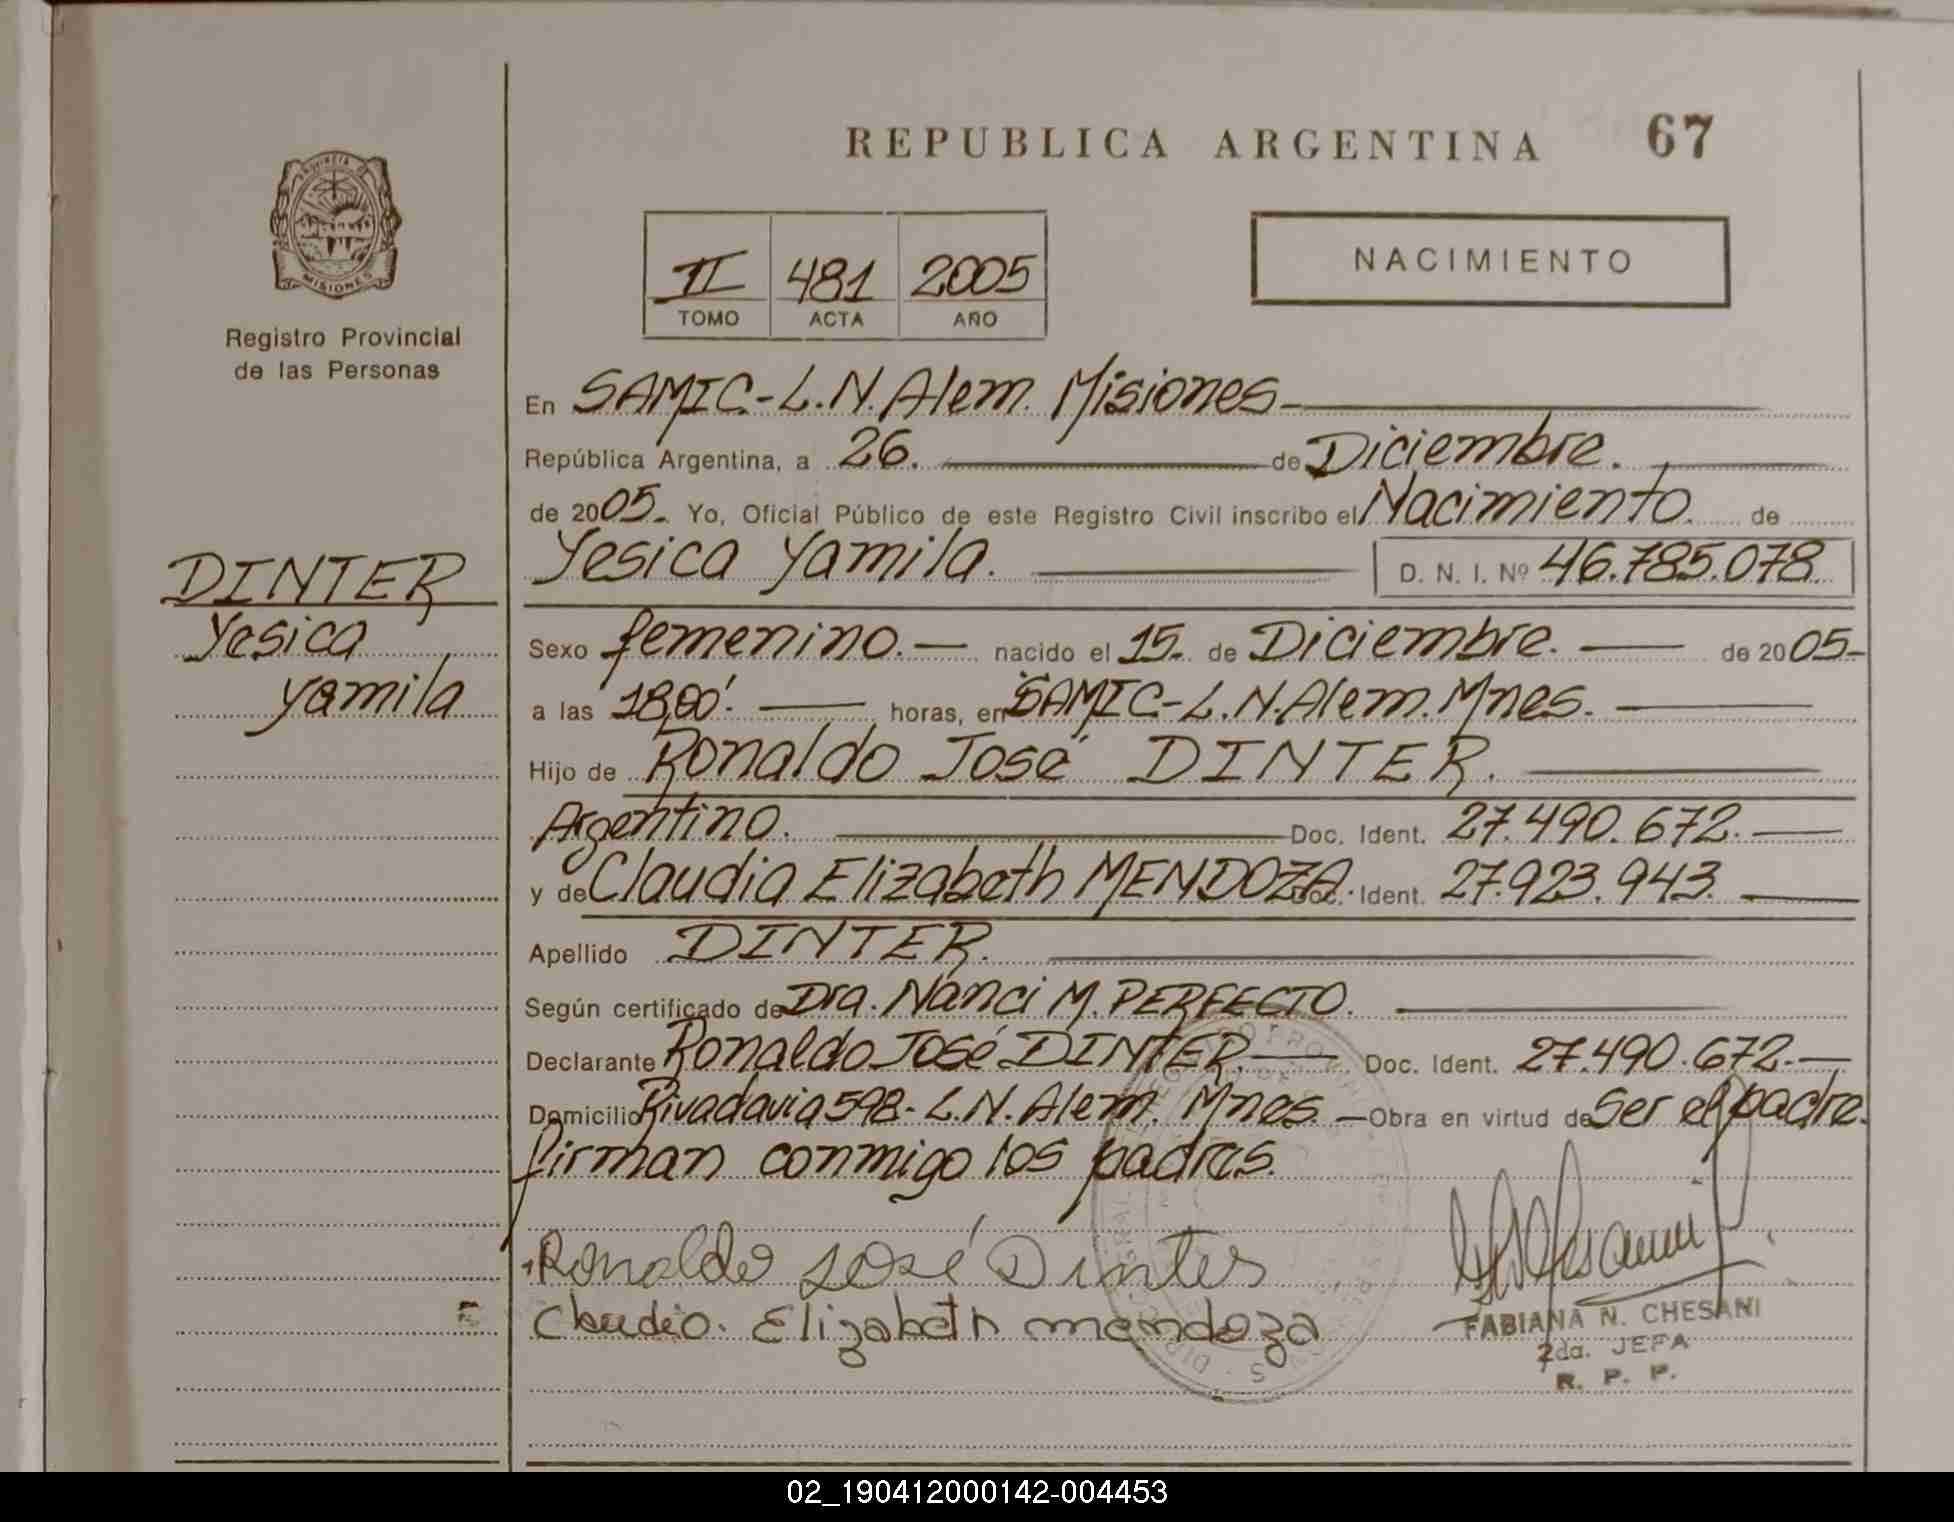 REPUBLICA ARGENTINA 67
PROVINCIA D
MISIONES
Registro Provincial
de las Personas
II 481 2005
TOMO ACTA AÑO
NACIMIENTO
En SAMIC-L.N.Alem. Misiones
República Argentina, a 26. de Diciembre.
de 2005. Yo, Oficial Público de este Registro Civil inscribo el Nacimiento. de
Yesica Yamila. D. N. I. Nº 46.785.078
DINTER
Yesica
Yamila
Sexo femenino. nacido el 15. de Diciembre. de 2005
a las 18,00'. horas, en SAMIC-L.N.Alem.Mnes.
Hijo de Ronaldo José DINTER.
Argentino. Doc. Ident. 27.490.672.
y de Claudia Elizabeth MENDOZA. Doc. Ident. 27.923.943.
Apellido DINTER.
Según certificado de Dra. Nanci M. PERFECTO.
Declarante Ronaldo José DINTER. Doc. Ident. 27.490.672.
Domicilio Rivadavia 598. L.N.Alem. Mnes. Obra en virtud de Ser el padre.
firman conmigo los padres.
Ronaldo José Dinter
Claudia. Elizabeth mendoza
FABIANA N. CHESANI
2da. JEFA
R. P. P.
02_190412000142-004453